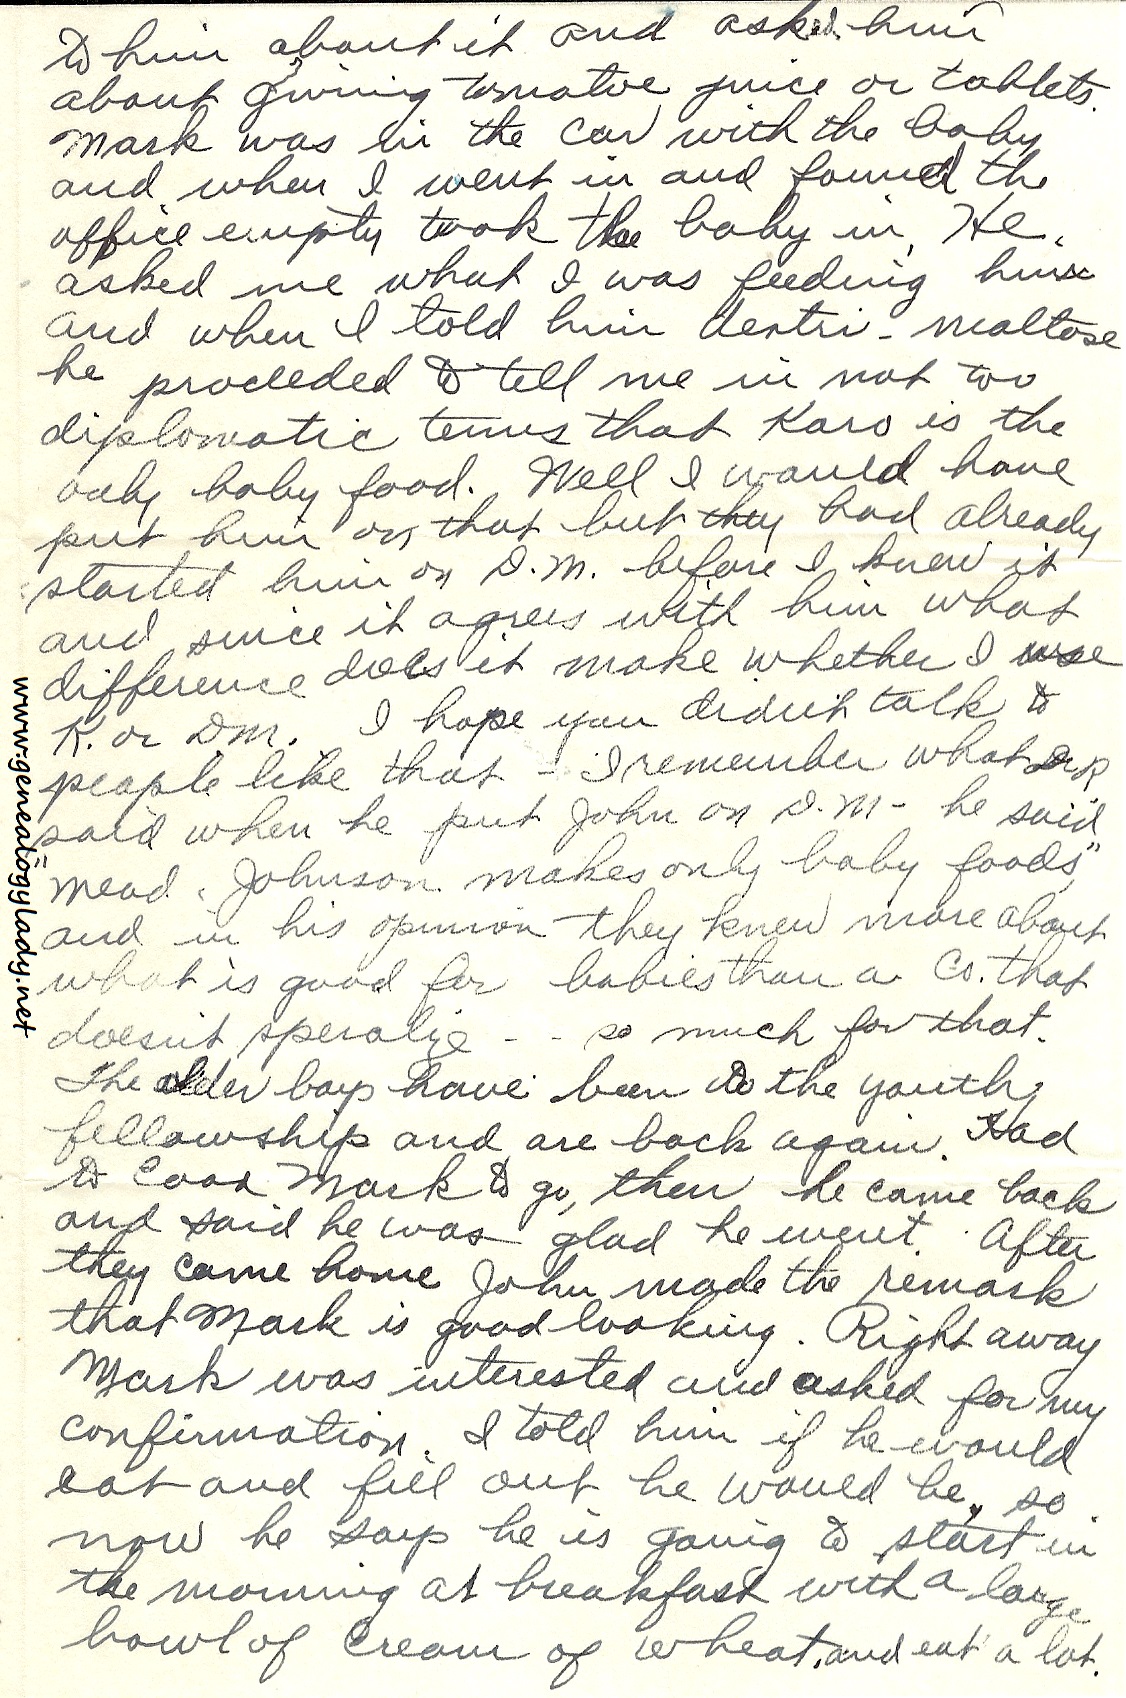 to him about it and asked him
about giving tomatoe juice or tablets.
Mark was in the car with the baby
and when I went in and found the
office empty took the baby in. He
asked me what I was feeding him
and when I told him dextri-maltose
he proceeded to tell me in not too
diplomatic terms that Karo is the
only baby food. Well I would have
put him on that but they had already
started him on D.M. before I knew it
and since it agrees with him what
difference does it make whether I use
K. or DM. I hope you didn't talk to
people like that - I remember what Dr R
said when he put John on D.M - he said
"Mead Johnson makes only baby foods",
and in his opinion they knew more about
what is good for babies than a Co. that
doesn't speralize - - so much for that.
The older boys have been to the youth
fellowship and are back again. Had
to coax Mark to go, then he came back
and said he was glad he went. After
they came home John made the remark
that Mark is good looking. Right away
Mark was interested and asked for my
confirmation. I told him if he would
eat and fill out he would be, so
now he says he is going to start in
the morning at breakfast with a large
bowl of Cream of wheat, and eat a lot.
www.genealogylady.net